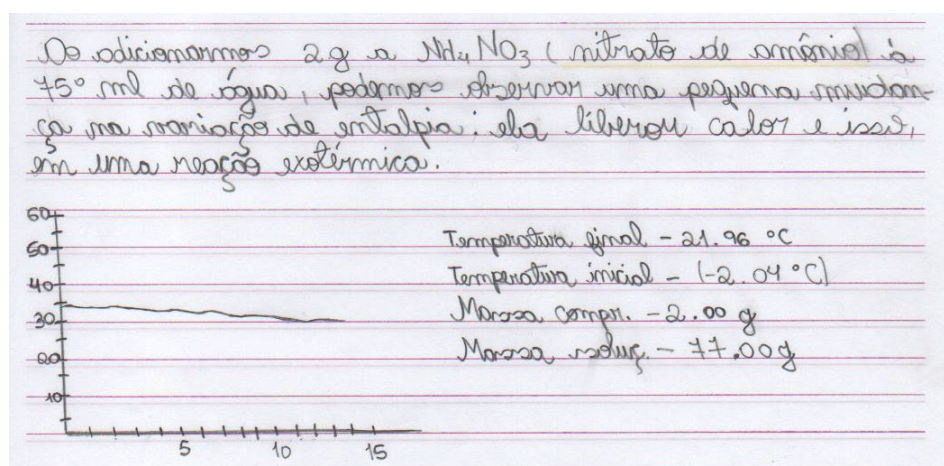 Ao adicionarmos 2 g a NH4 NO3 ( nitrato de amônio) à
75° ml de água, podemos observar uma pequena mudan-
ça na variação de entalpia: ela liberou calor e isso,
em uma reação exotérmica.
60
50
40
30
20
10
5 10 15
Temperatura final - 21.96 °C
Temperatura inicial - (-2.04 °C)
Massa compr. - 2.00 g
Massa soluç. - 77.00g